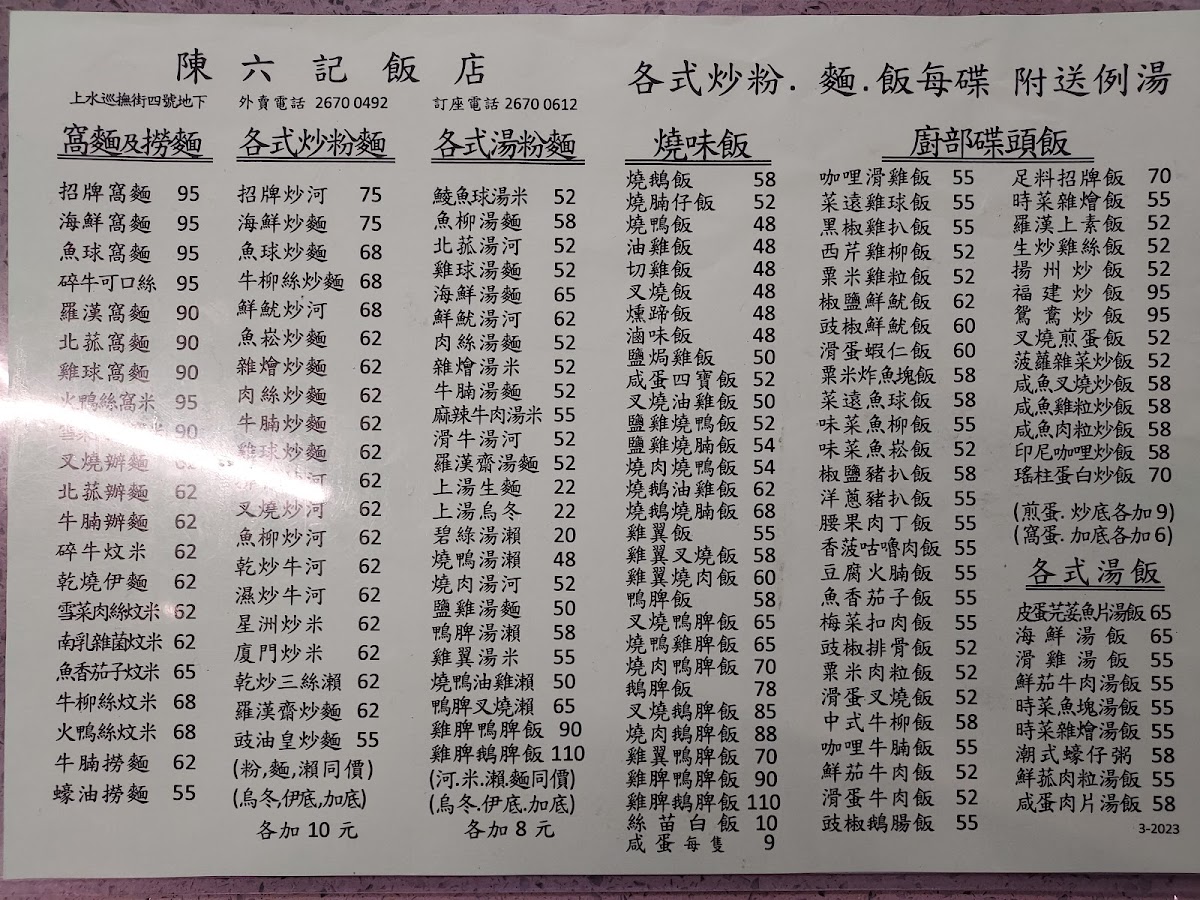 陳六記飯店
上水巡撫街四號地下 外賣電話 2670 0492 訂座電話 2670 0612
各式炒粉. 麵.飯每碟 附送例湯
窩麵及撈麵
招牌窩麵 95
海鮮窩麵 95
魚球窩麵 95
碎牛可口絲 95
羅漢窩麵 90
北菰窩麵 90
雞球窩麵 90
火鴨絲窩米 95
90
叉燒辦麵 62
北菰辦麵 62
牛腩辦麵 62
碎牛炆米 62
乾燒伊麵 62
雪菜肉絲炆米 62
南乳雜菌炆米 62
魚香茄子炆米 65
牛柳絲炆米 68
火鴨絲炆米 68
牛腩撈麵 62
蠔油撈麵 55
各式炒粉麵
招牌炒河 75
海鮮炒麵 75
魚球炒麵 68
牛柳絲炒麵 68
鮮魷炒河 68
魚崧炒麵 62
雜燴炒麵 62
肉絲炒麵 62
牛腩炒麵 62
雞球炒麵 62
炒河 62
叉燒炒河 62
魚柳炒河 62
乾炒牛河 62
濕炒牛河 62
星洲炒米 62
廈門炒米 62
乾炒三絲瀨 62
羅漢齋炒麵 62
豉油皇炒麵 55
(粉,麵,瀨同價)
(烏冬,伊底,加底)
各加 10 元
各式湯粉麵
鯪魚球湯米 52
魚柳湯麵 58
北菰湯河 52
雞球湯麵 52
海鮮湯麵 65
鮮魷湯河 62
肉絲湯麵 52
雜燴湯米 52
牛腩湯麵 52
麻辣牛肉湯米 55
滑牛湯河 52
羅漢齋湯麵 52
上湯生麵 22
上湯烏冬 22
碧綠湯瀨 20
燒鴨湯瀨 48
燒肉湯河 52
鹽雞湯麵 50
鴨脾湯瀨 58
雞翼湯米 55
燒鴨油雞瀨 50
鴨脾叉燒瀨 65
雞脾鴨脾飯 90
雞脾鵝脾飯 110
(河.米.瀨.麵同價)
(烏冬.伊底.加底)
各加 8 元
燒味飯
燒鵝飯 58
燒腩仔飯 52
燒鴨飯 48
油雞飯 48
切雞飯 48
叉燒飯 48
燻蹄飯 48
滷味飯 48
鹽焗雞飯 50
咸蛋四寶飯 52
叉燒油雞飯 50
鹽雞燒鴨飯 52
鹽雞燒腩飯 54
燒肉燒鴨飯 54
燒鵝油雞飯 62
燒鵝燒腩飯 68
雞翼飯 55
雞翼叉燒飯 58
雞翼燒肉飯 60
鴨脾飯 58
叉燒鴨脾飯 65
燒鴨雞脾飯 65
燒肉鴨脾飯 70
鵝脾飯 78
叉燒鵝脾飯 85
燒肉鵝脾飯 88
雞翼鴨脾飯 70
雞脾鴨脾飯 90
雞脾鵝脾飯 110
絲苗白飯 10
咸蛋每隻 9
廚部碟頭飯
咖哩滑雞飯 55
菜遠雞球飯 55
黑椒雞扒飯 55
西芹雞柳飯 52
粟米雞粒飯 52
椒鹽鮮魷飯 62
豉椒鮮魷飯 60
滑蛋蝦仁飯 60
粟米炸魚塊飯 58
菜遠魚球飯 58
味菜魚柳飯 55
味菜魚崧飯 52
椒鹽豬扒飯 58
洋蔥豬扒飯 55
腰果肉丁飯 55
香菠咕嚕肉飯 55
豆腐火腩飯 55
魚香茄子飯 55
梅菜扣肉飯 55
豉椒排骨飯 52
粟米肉粒飯 52
滑蛋叉燒飯 52
中式牛柳飯 58
咖哩牛腩飯 55
鮮茄牛肉飯 52
滑蛋牛肉飯 52
豉椒鵝腸飯 55
足料招牌飯 70
時菜雜燴飯 55
羅漢上素飯 52
生炒雞絲飯 52
揚州炒飯 52
福建炒飯 95
鴛鴦炒飯 95
叉燒煎蛋飯 52
菠蘿雜菜炒飯 52
咸魚叉燒炒飯 58
咸魚雞粒炒飯 58
咸魚肉粒炒飯 58
印尼咖哩炒飯 58
瑤柱蛋白炒飯 70
(煎蛋. 炒底各加 9)
(窩蛋. 加底各加 6)
各式湯飯
皮蛋芫荽魚片湯飯 65
海鮮湯飯 65
滑雞湯飯 55
鮮茄牛肉湯飯 55
時菜魚塊湯飯 55
時菜雜燴湯飯 55
潮式蠔仔粥 58
鮮菰肉粒湯飯 55
咸蛋肉片湯飯 58
3-2023